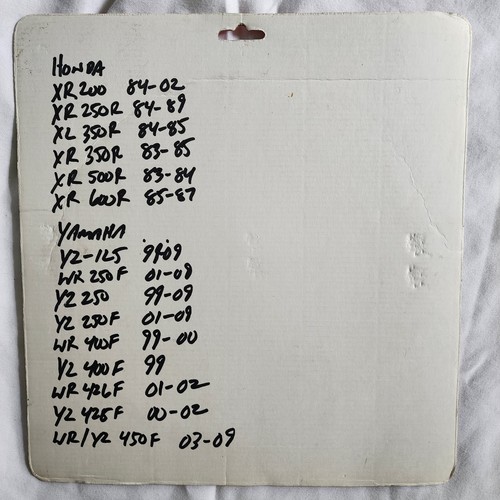 HONDA
XR 200 84-02
XR 250R 84-89
XL 350R 84-85
XR 350R 83-85
XR 500R 83-84
XR 600R 85-87
YAMAHA
YZ-125 99-09
WR 250F 01-09
YZ 250 99-09
YZ 250F 01-09
WR 400F 99-00
YZ 400F 99
WR 426F 01-02
YZ 426F 00-02
WR/YZ 450F 03-09